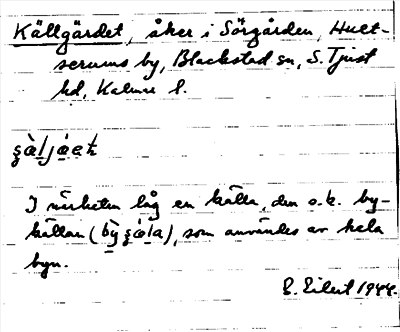 Källgärdet, åker i Sörgården, Hult-
serums by, Blackstad sn, S. Tjust
hd, Kalmar l.
I närheten låg en källa, den s.k. by-
källan (), som användes av hela
byn.
E. Eilert 1944.